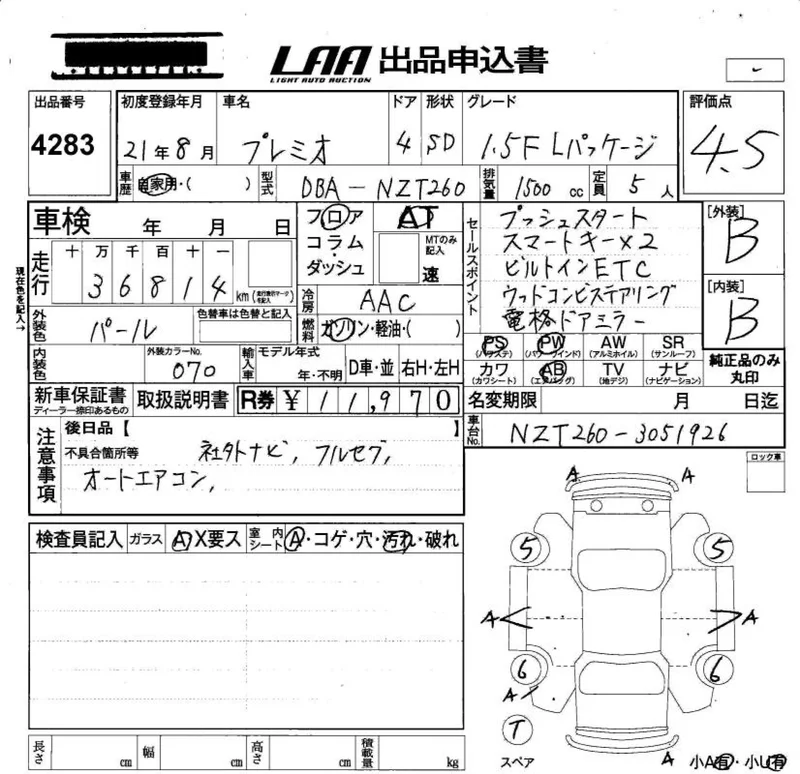 LAA 出品申込書
LIGHT AUTO AUCTION
出品番号 初度登録年月 車名 ドア 形状 グレード 評価点
4283 21年8月 プレミオ 4 SD 1.5F Lパッケージ 4.5
車歴 自家用・( ) 型式 DBA-NZT260 排気量 1500cc 定員 5人
車検 年 月 日 フロア AT セールスポイント プッシュスタート [外装]
コラム・ MTのみ記入 スマートキー×2 B
ダッシュ 速 ビルトインETC
現在色を記入→
走行 十 万 千 百 十 一
3 6 8 1 4 km (走行メーターマークを記入) 冷房 AAC ウッドコンビステアリング [内装]
外装色 パール 色替車は色替と記入 燃料 ガソリン・軽油・( ) 電格ドアミラー B
PS PW AW SR
(パワステ) (パワーウインド) (アルミホイル) (サンルーフ)
内装色 外装カラーNo. 070 輸入車 モデル年式 年・不明 D車・並 右H・左H
カワ AB TV ナビ 純正品のみ丸印
(カワシート) (エアバッグ) (地デジ) (ナビゲーション)
新車保証書 取扱説明書 R券 ¥ 11,970 名変期限 月 日迄
ディーラー捺印あるもの
車台No. NZT260-3051926
注意事項 後日品【 】
不具合箇所等 社外ナビ, フルセグ, ロック車
オートエアコン,
検査員記入 ガラス A X要ス 室内シート A・コゲ・穴・汚れ・破れ
A A
5 5
A A
6 6
A
T
スペア A 小A有・小U有
長さ cm 幅 cm 高さ cm 積載量 kg